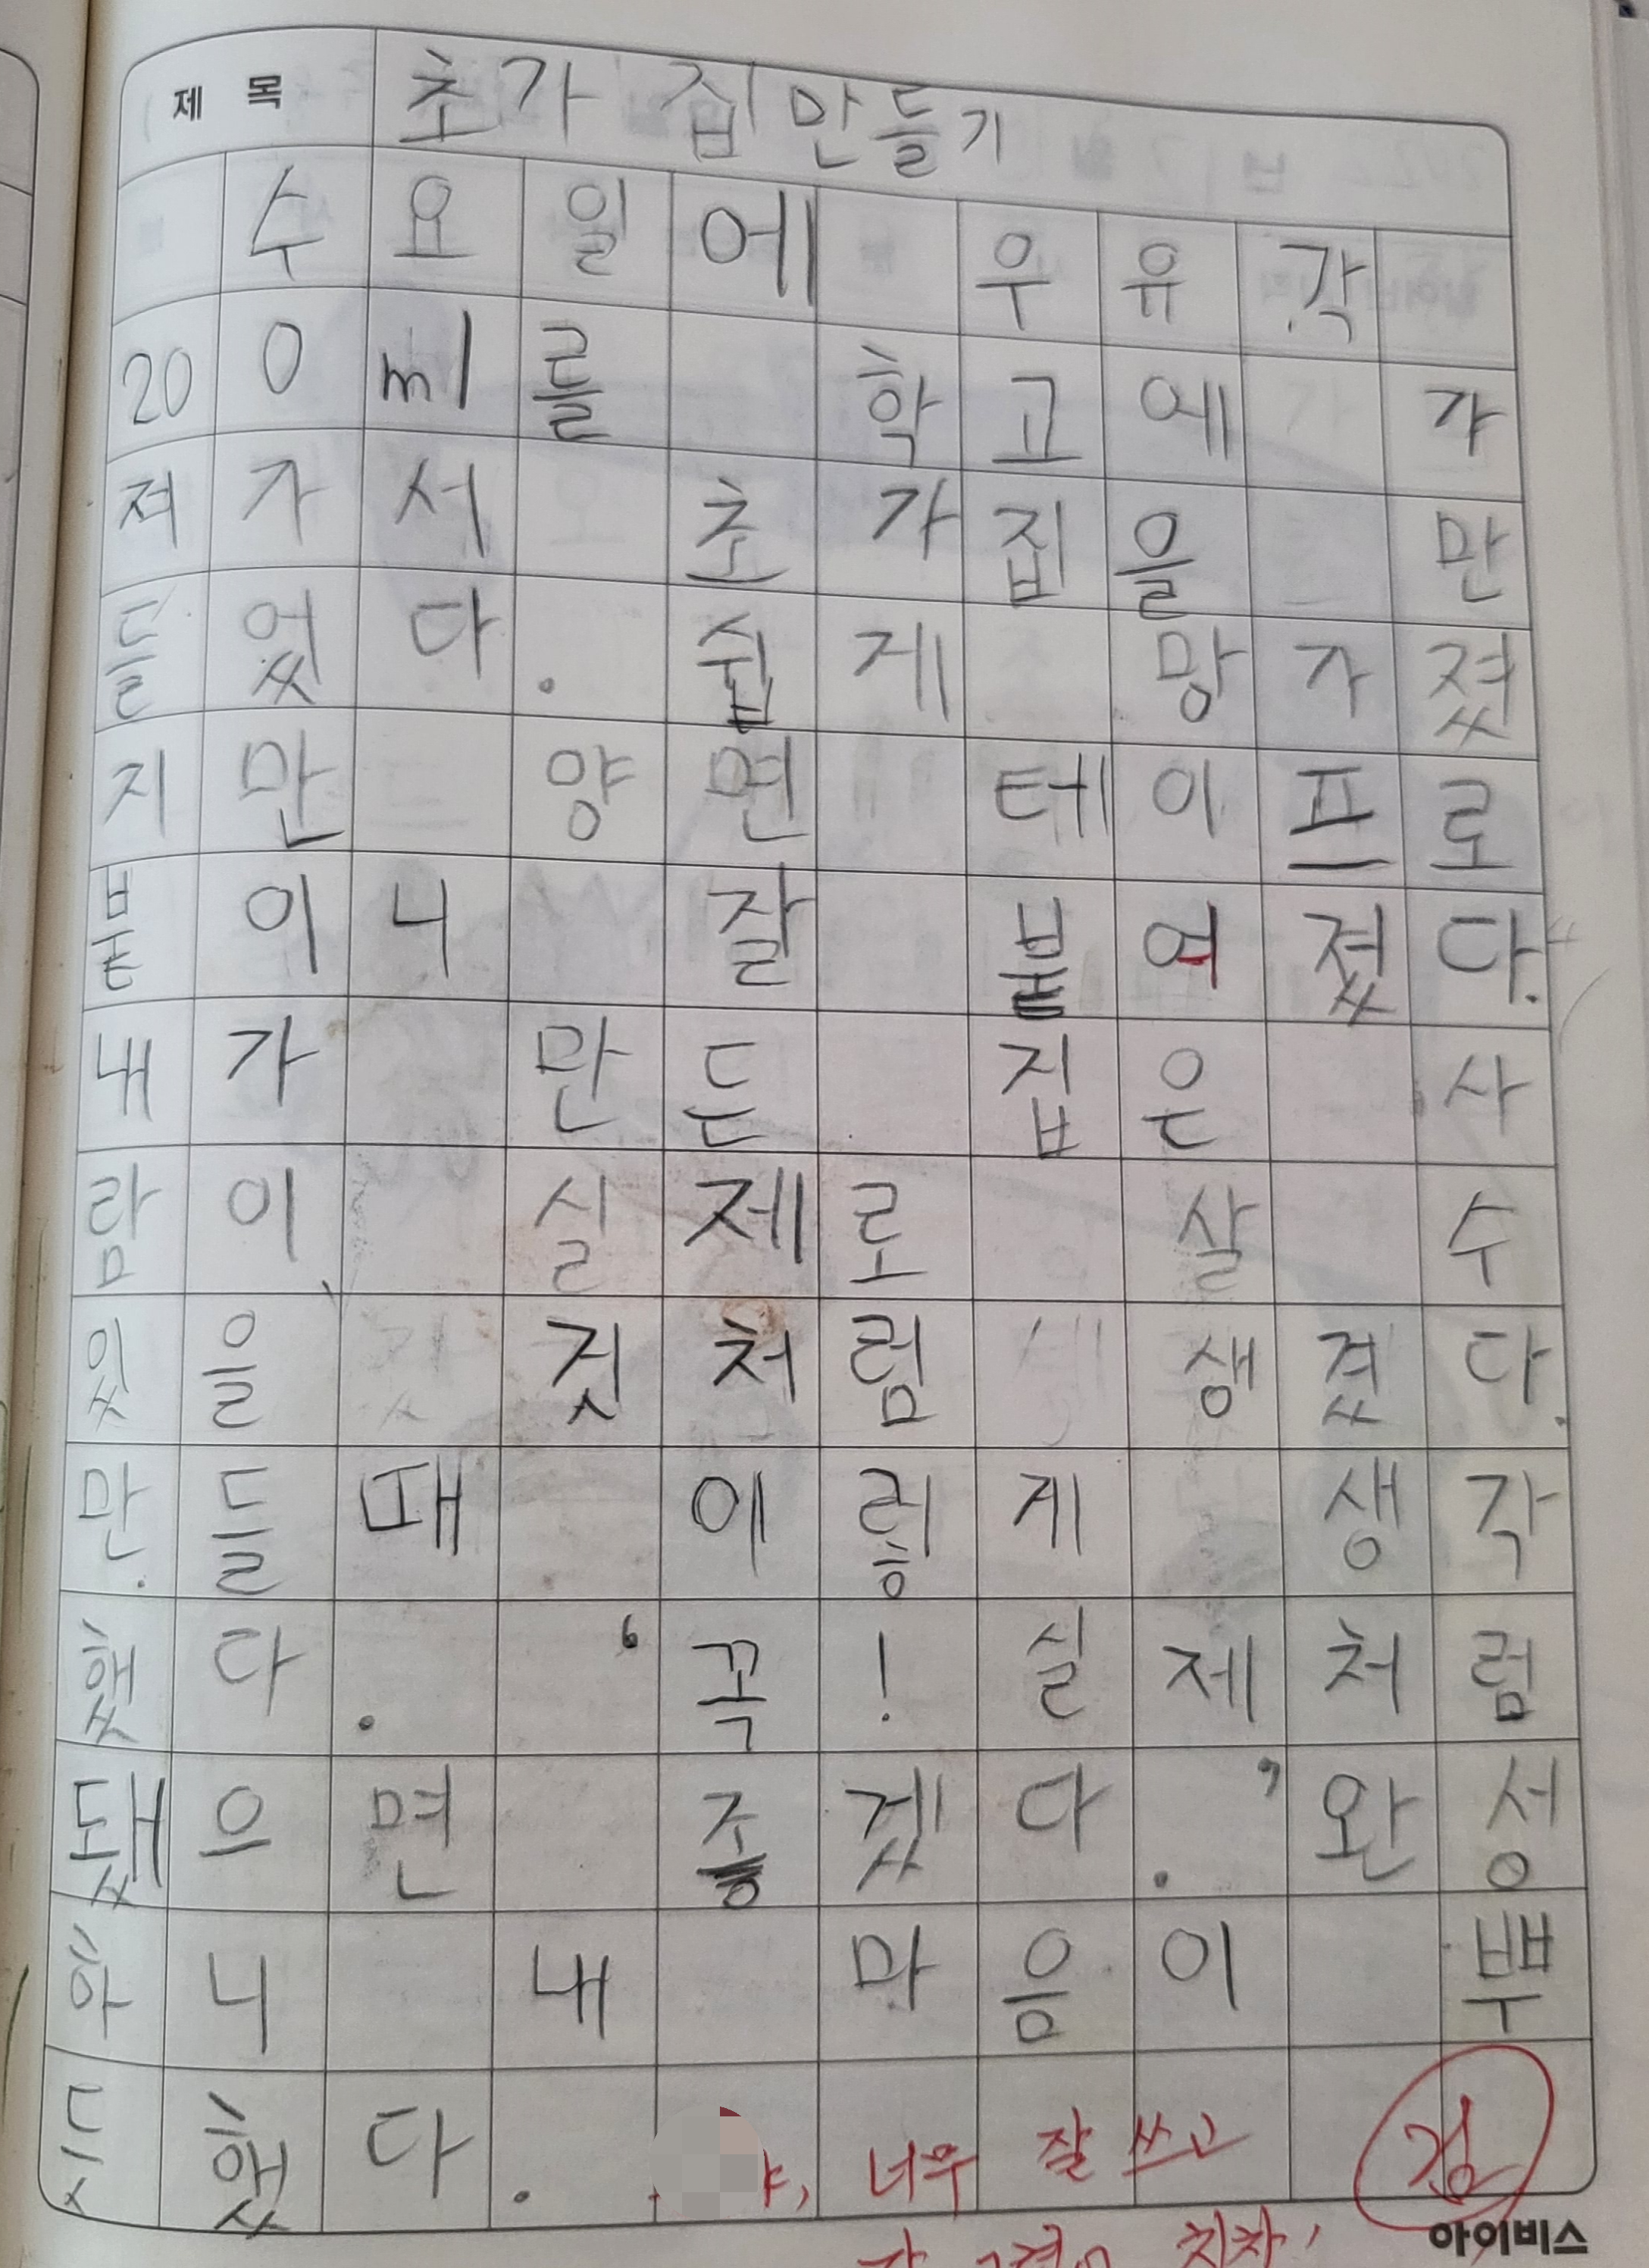 제 목 초가 집만들기
수요일에 우유각
200ml를 학고에 가
져가서 초가집을 만
들었다. 쉽게 망가졌
지만 양면 테이프로
붙이니 잘 붙여졌다.
내가 만든 집은 사
람이 실제로 살 수
있을 것처럼 생겼다.
만들때 이렇게 생각
했다. ‘꼭! 실제처럼
됐으면 좋겠다.’완성
하니 내 마음이 뿌
듯했다.
야, 너무 잘 쓰고
검
아이비스